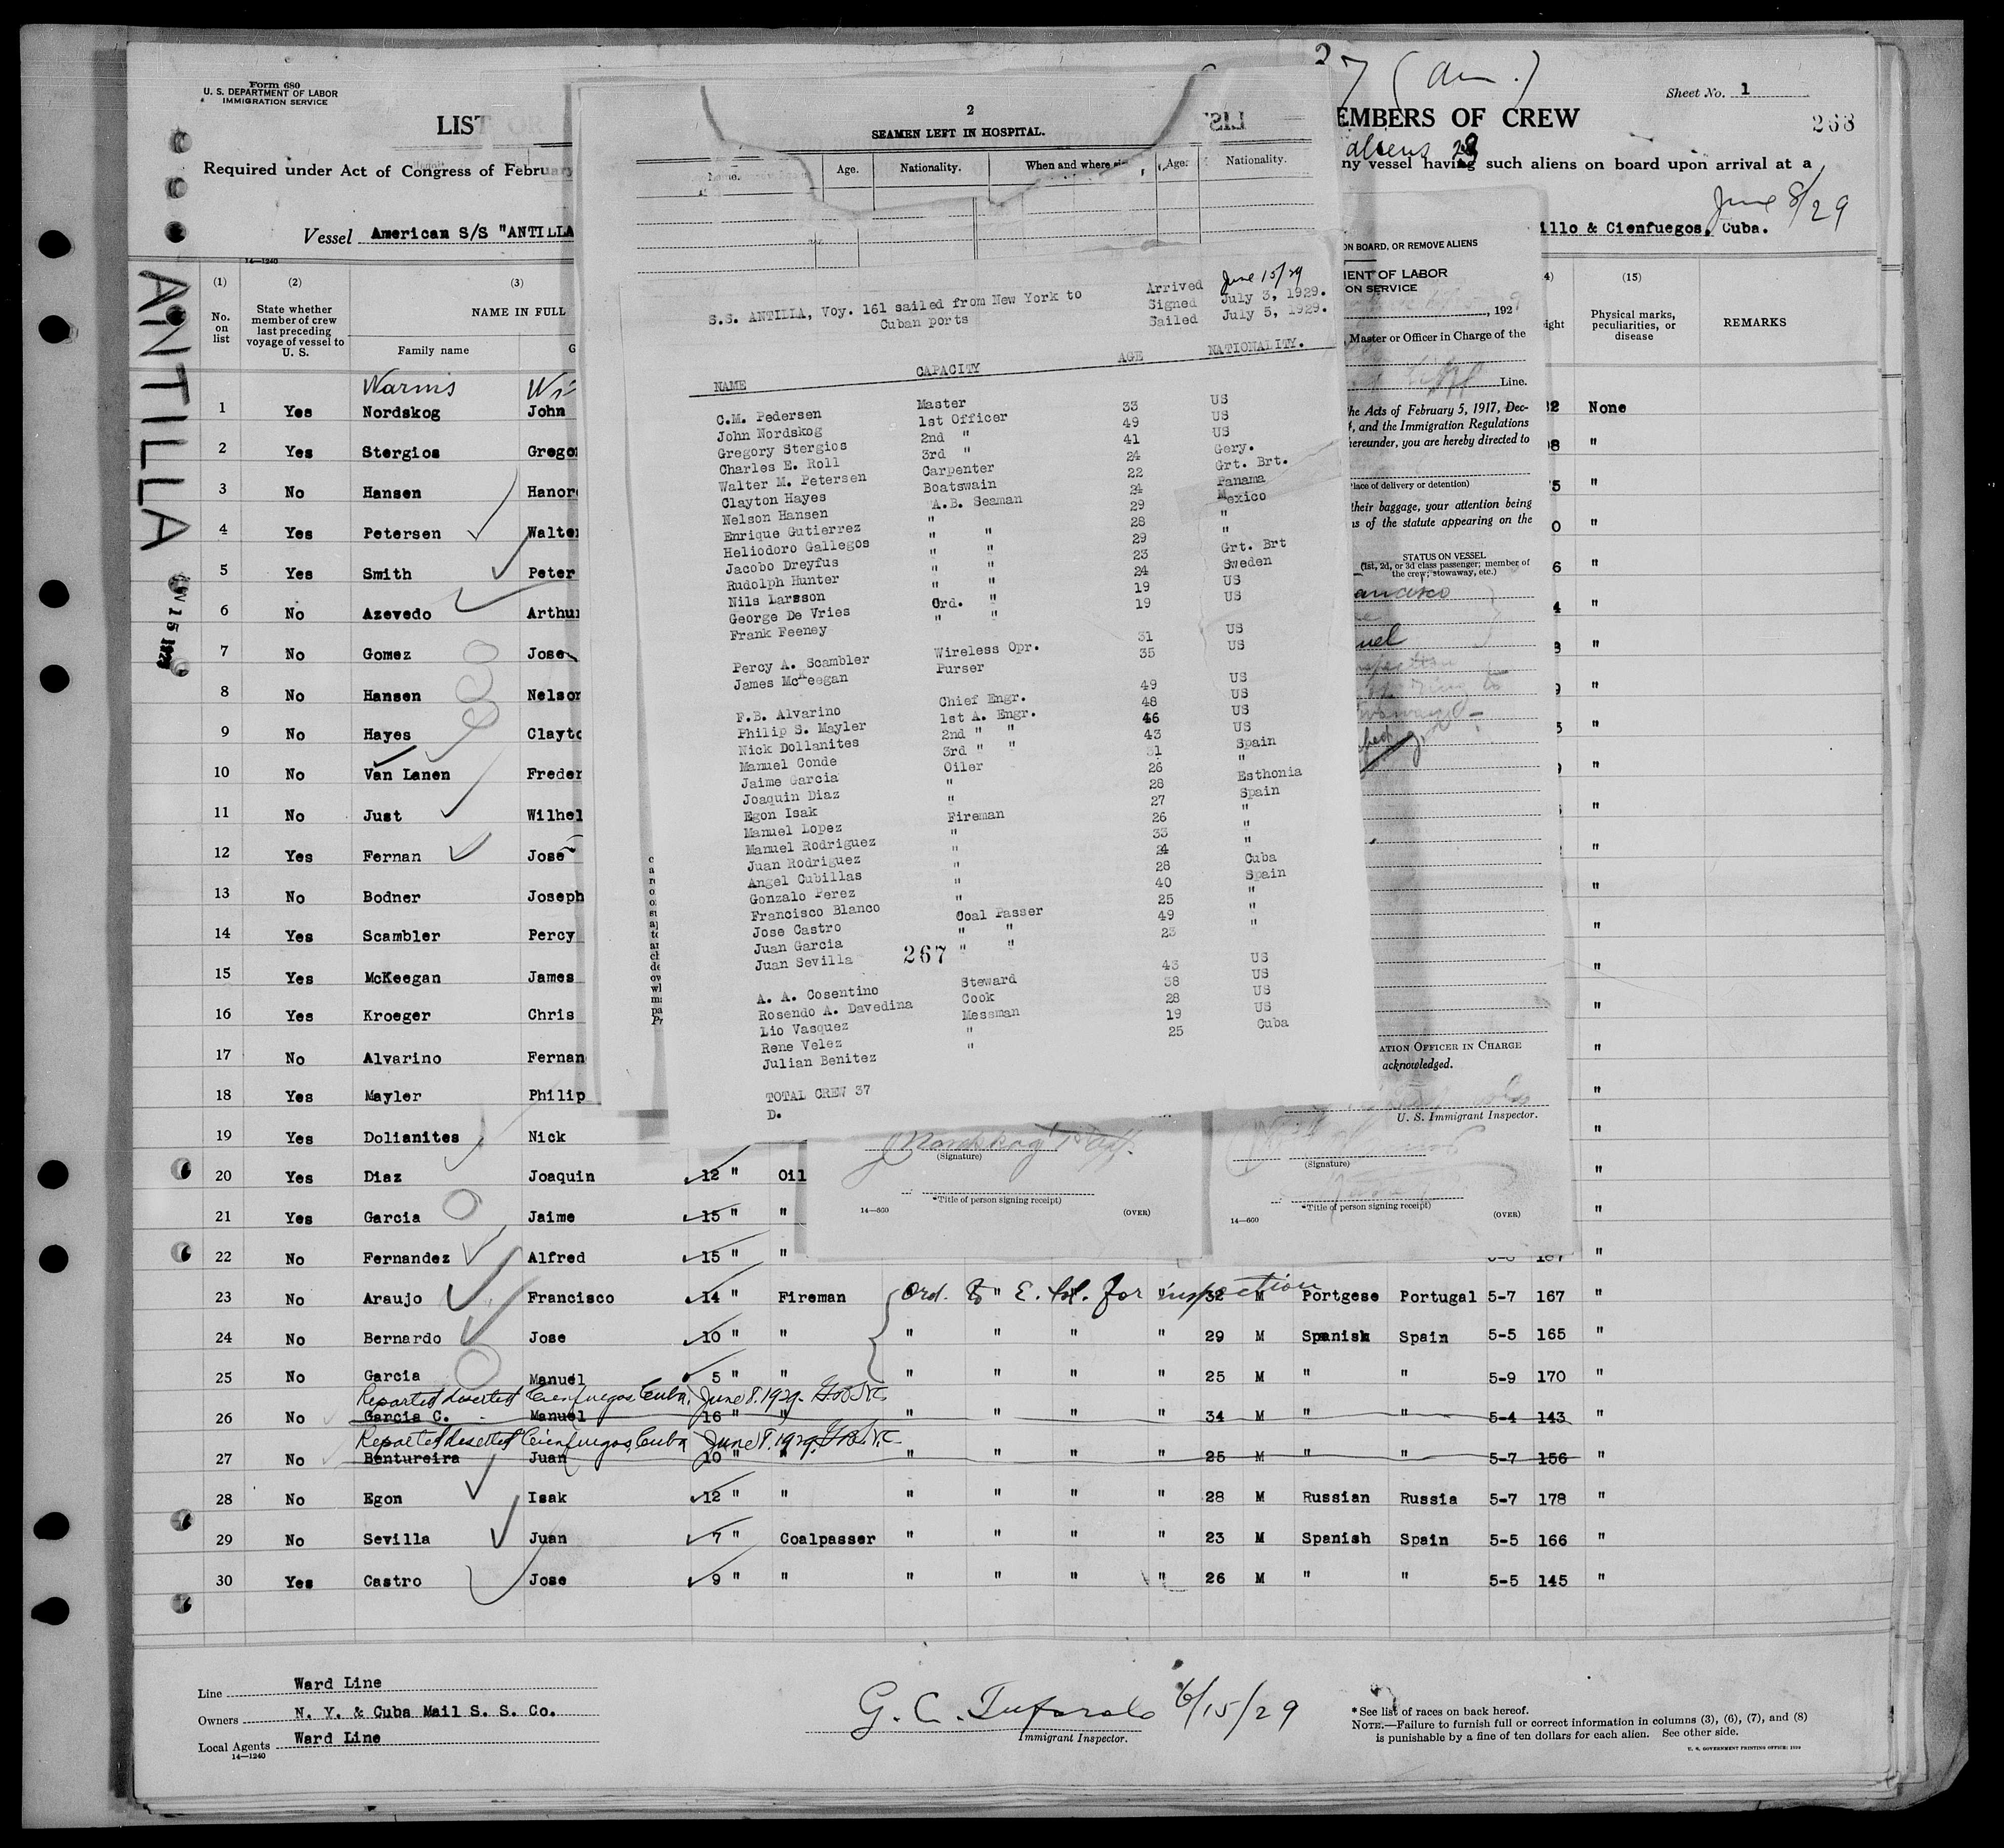 Form 680
U. S. DEPARTMENT OF LABOR
IMMIGRATION SERVICE
LIST OR
EMBERS OF CREW
Sheet No. 1
268
27 (am.)
aliens 28
Required under Act of Congress of February
ny vessel having such aliens on board upon arrival at a
June 8/29
Vessel American S/S "ANTILLA
illo & Cienfuegos, Cuba.
ANTILLA
14—1240
(1) (2) (3) 4) (15)
No. on list
State whether member of crew last preceding voyage of vessel to U. S.
NAME IN FULL
Family name G
ight
Physical marks, peculiarities, or disease
REMARKS
Warms
1 Yes Nordskog John 2 None
2 Yes Stergios Grego 8 "
3 No Hansen Hanor 5 "
4 Yes Petersen Walte 0 "
5 Yes Smith Peter 6 "
6 No Azevedo Arthu 4 "
7 No Gomez Jose "
8 No Hansen Nelson 9 "
9 No Hayes Clayto 5 "
10 No Van Lanen Freder "
11 No Just Wilhel "
12 Yes Fernan Jose "
13 No Bodner Joseph "
14 Yes Scambler Percy "
15 Yes McKeegan James "
16 Yes Kroeger Chris "
17 No Alvarino Fernan "
18 Yes Mayler Philip "
19 Yes Dolianites Nick "
20 Yes Diaz Joaquin 12 " Oil "
21 Yes Garcia Jaime 15 " " "
22 No Fernandez Alfred 15 " " "
Ord. to E. Isl. for inspection
23 No Araujo Francisco 14 " Fireman " " 32 M Portgese Portugal 5-7 167 "
24 No Bernardo Jose 10 " " " " " " 29 M Spanish Spain 5-5 165 "
25 No Garcia Manuel 5 " " " " " " 25 M " " 5-9 170 "
Reported deserted Cienfuegos, Cuba, June 8. 1929.
26 No Garcia C. Manuel 16 " " " " " " 34 M " " 5-4 143 "
Reported deserted Cienfuegos, Cuba June 8. 1929.
27 No Bentureira Juan 10 " " " " " " 25 M " " 5-7 156 "
28 No Egon Isak 12 " " " " " " 28 M Russian Russia 5-7 178 "
29 No Sevilla Juan 7 " Coalpasser " " " " 23 M Spanish Spain 5-5 166 "
30 Yes Castro Jose 9 " " " " " " 26 M " " 5-5 145 "
Line Ward Line
Owners N. Y. & Cuba Mail S. S. Co.
Local Agents Ward Line
14—1240
6/15/29
Immigrant Inspector.
*See list of races on back hereof.
NOTE.—Failure to furnish full or correct information in columns (3), (6), (7), and (8)
is punishable by a fine of ten dollars for each alien. See other side.
U. S. GOVERNMENT PRINTING OFFICE:
2
SEAMEN LEFT IN HOSPITAL.
Name. Age. Nationality. When and where Age. Nationality.
S.S. ANTILLA, Voy. 161 sailed from New York to
Cuban ports
Arrived June 15/29
Signed July 3, 1929.
Sailed July 5, 1929.
NAME CAPACITY AGE NATIONALITY.
C.M. Pedersen Master 33 US
John Nordskog 1st Officer 49 US
Gregory Stergios 2nd " 41 US
Charles E. Roll 3rd " 24 Gery.
Walter M. Petersen Carpenter 22 Grt. Brt.
Clayton Hayes Boatswain 24 Panama
Nelson Hansen A.B. Seaman 29 Mexico
Enrique Gutierrez " 28 "
Heliodoro Gallegos " " 29 "
Jacobo Dreyfus " " 23 Grt. Brt
Rudolph Hunter " " 24 Sweden
Nils Larsson " " 19 US
George De Vries Ord. " 19 US
Frank Feeney " "
Percy A. Scambler Wireless Opr. 31 US
James McKeegan Purser 35 US
F.B. Alvarino Chief Engr. 49 US
Philip S. Mayler 1st A. Engr. 48 US
Nick Dollanites 2nd " " 46 US
Manuel Conde 3rd " " 43 US
Jaime Garcia Oiler 31 Spain
Joaquin Diaz " 26 "
Egon Isak " 28 Esthonia
Manuel Lopez Fireman 27 Spain
Manuel Rodriguez " 26 "
Juan Rodriguez " 33 "
Angel Cubillas " 24 "
Gonzalo Perez " 28 Cuba
Francisco Blanco " 40 Spain
Jose Castro Coal Passer 25 "
Juan Garcia " " 49 "
Juan Sevilla " " 23 "
267
A. A. Cosentino Steward 43 US
Rosendo A. Davedina Cook 38 US
Lio Vasquez Messman 28 US
Rene Velez " 19 US
Julian Benitez " 25 Cuba
TOTAL CREW 37
D.
ON BOARD, OR REMOVE ALIENS
ENT OF LABOR
ON SERVICE
, 192
Master or Officer in Charge of the
Line.
he Acts of February 5, 1917, Dec-
, and the Immigration Regulations
hereunder, you are hereby directed to
lace of delivery or detention)
their baggage, your attention being
s of the statute appearing on the
STATUS ON VESSEL
(1st, 2d, or 3d class passenger; member of
the crew; stowaway, etc.)
ancisco
uel
ATION OFFICER IN CHARGE
acknowledged.
U. S. Immigrant Inspector.
(Signature)
*Title of person signing receipt)
14—600
(OVER)
(Signature)
*Title of person signing receipt)
14—600
(OVER)